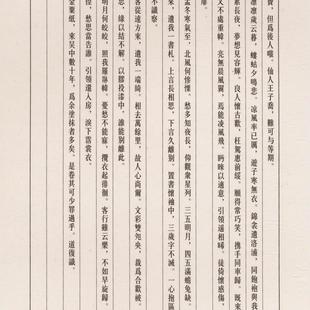 費，但爲後人嗤。仙人王子喬，難可與等期。
凜凜歲云暮，螻蛄夕鳴悲。涼風率已厲，遊子寒無衣。錦衾遺洛浦，同袍與我
累長夜，夢想見容輝。良人懷古歡，枉駕惠前綏。願得常巧笑，攜手同車歸。既來
又不處重幃。亮無晨風翼，焉能凌風飛。眄睞以適意，引領遥相睎。徙倚懷感傷，
扉。
孟冬寒氣至，北風何慘慄。愁多知夜長，仰觀衆星列。三五明月，四五滿蟾兔缺。
來，遺我一書札。上言長相思，下言久離別。置書懷袖中，三歲字不滅。一心抱區
不識察。
客從遠方來，遺我一端綺。相去萬餘里，故人心尚爾。文彩雙夗央，裁爲合歡被。
思，緣以結不解。以膠投漆中，誰能別離此。
明月何皎皎，照我羅牀幃。憂愁不能寐，攬衣起徘徊。客行雖云樂，不如早旋歸。
徨，愁思當告誰。引領還入房，淚下霑裳衣。
金粟紙，來吴中數十年，爲余塗抹者多矣。是卷其可少罪過乎。道復識。